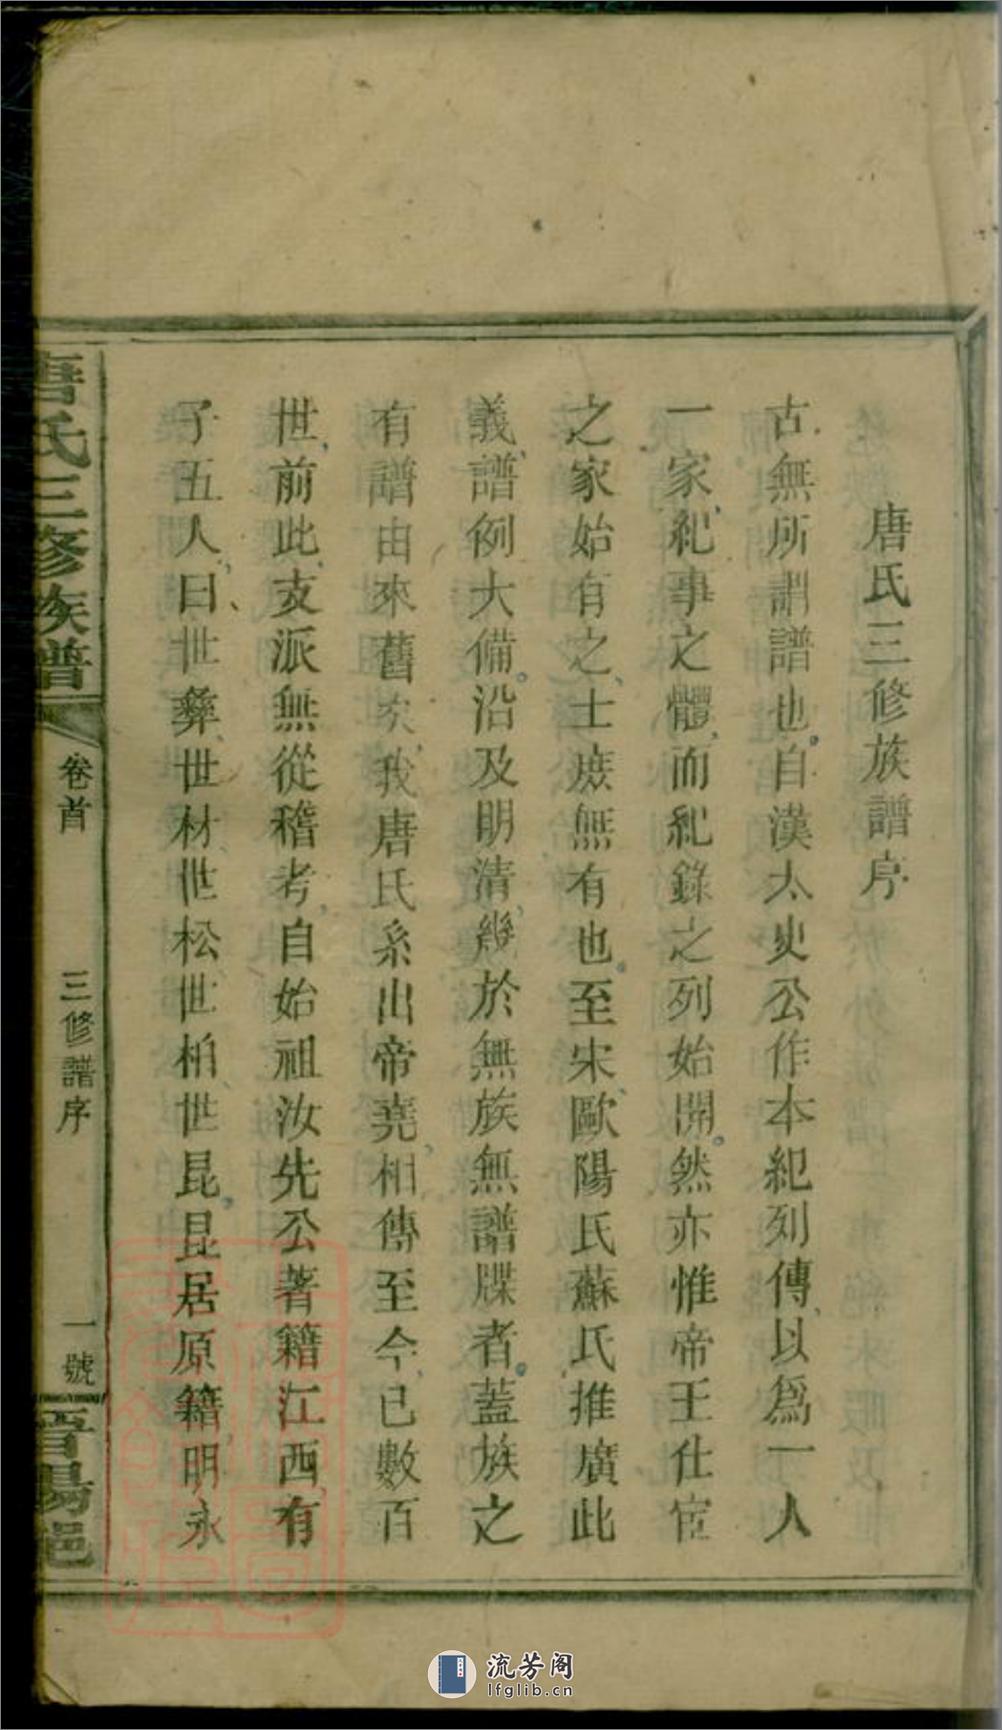 唐氏三修族譜序
古無所謂譜也自漢太史公作本紀列傳以為一人
一家紀事之體而紀錄之列始開然亦惟帝王仕宦
之家始有之士庶無有也至宋歐陽氏蘇氏推廣此
義譜例大備沿及明清幾於無族無譜牒者蓋族之
有譜由來舊矣我唐氏系出帝堯相傳至今已數百
世前此支派無從稽考自始祖汝先公著籍江西有
子五人曰世彝世材世松世柏世昆昆居原籍明永
唐氏三修族譜
卷首
三修譜序
一號
晋陽邑
流芳阁
lfglib.cn